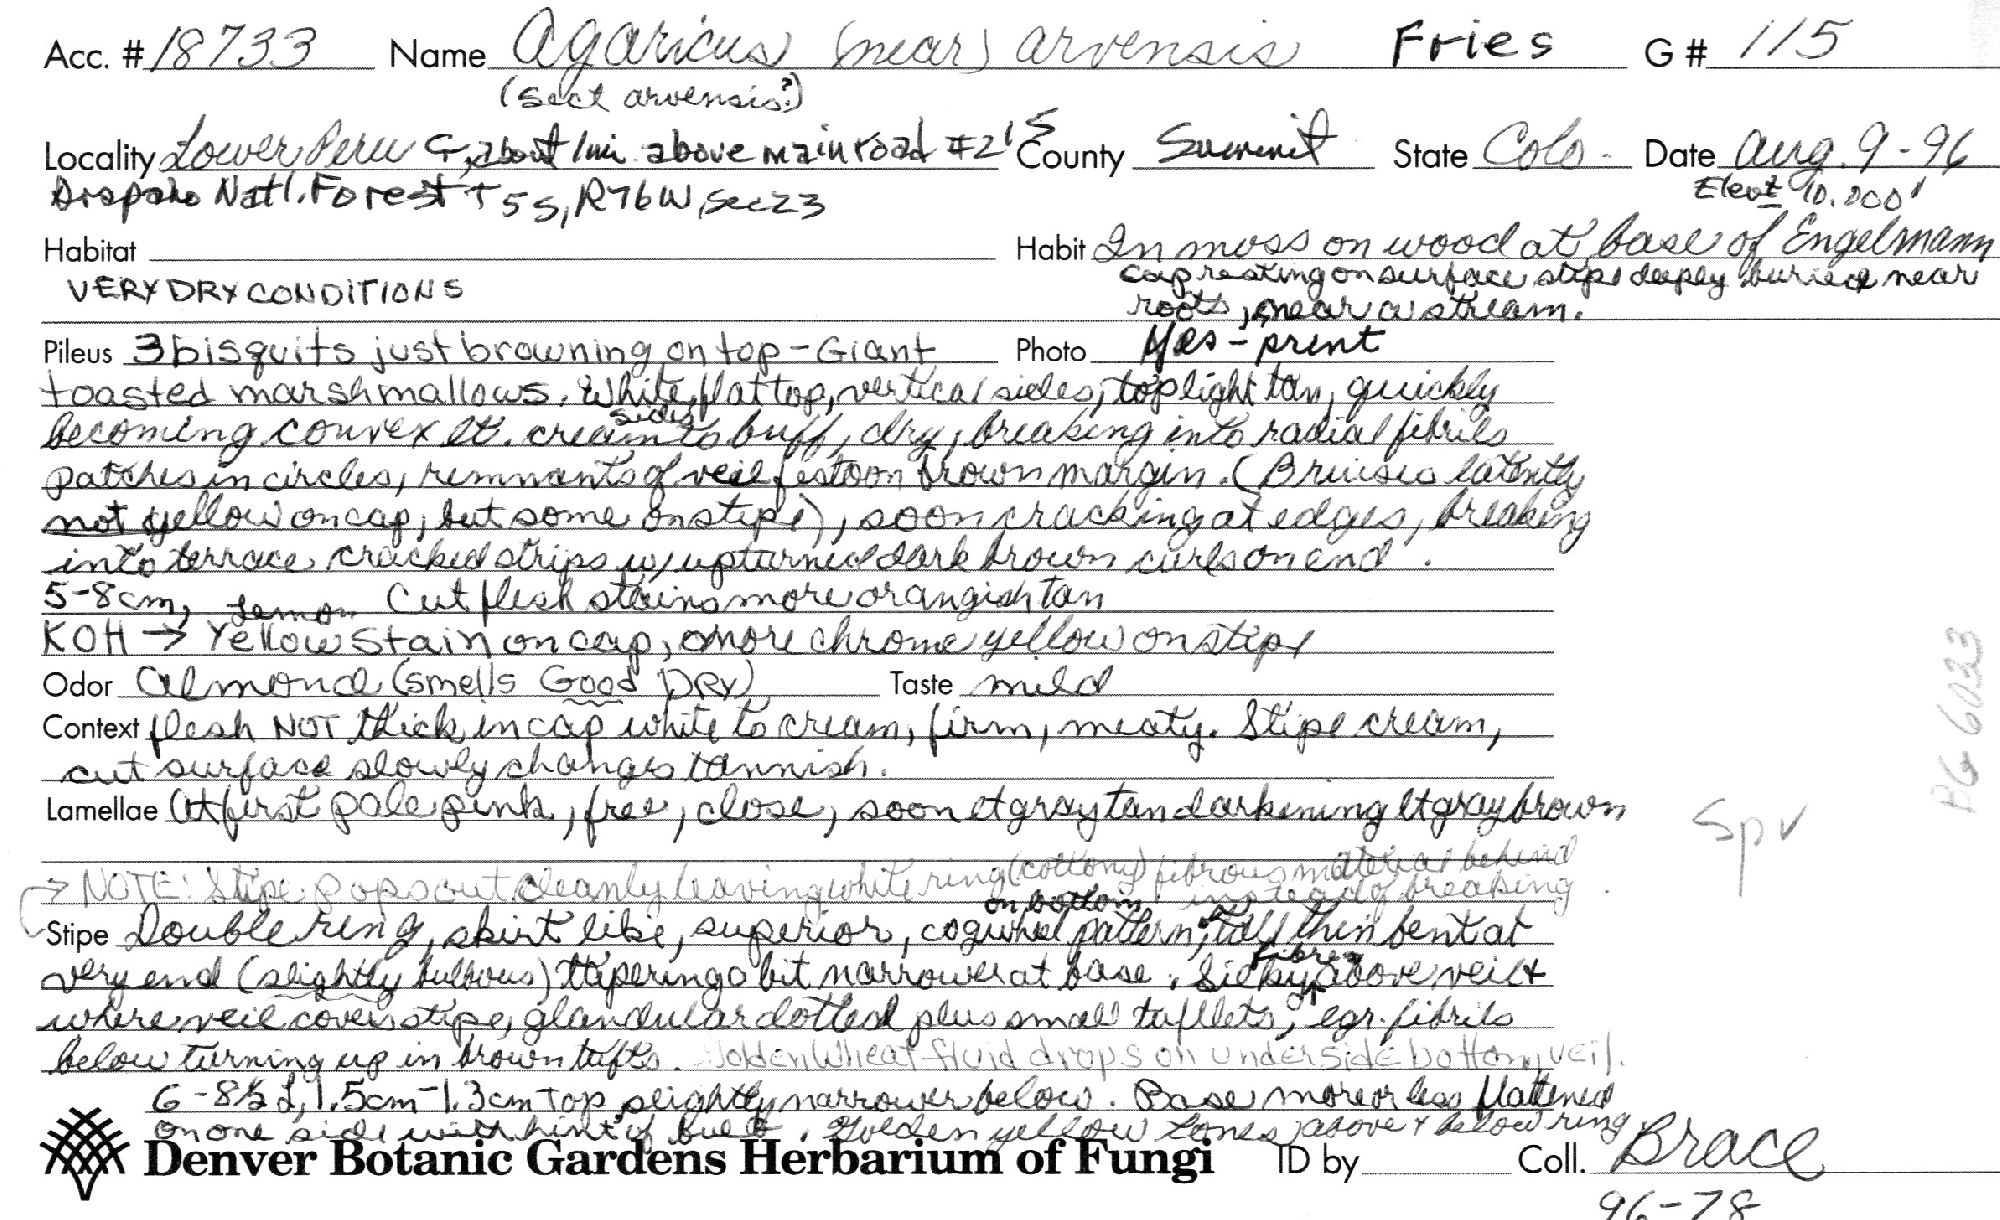 Acc. # 18733 Name Agaricus (near) arvensis Fries G # 115
(sect arvensis?)
Locality Lower Peru C, about 1 mi above main road #2 1 5 County Summit State Colo - Date Aug. 9 - 96
Arapaho Nat'l. Forest T5S, R76W, Sec 23 Elev± 10.000'
Habitat Habit In moss on wood at base of Engelmann
VERY DRY CONDITIONS cap resting on surface stipe deeply buried near
roots, near a stream.
Pileus 3 bisquits just browning on top - Giant Photo Yes - print
toasted marshmallows. White, flat top, vertical sides, top light tan, quickly
becoming convex lt. cream sides to buff, dry, breaking into radial fibrils
patches in circles, remnants of veil festoon brown margin. (Bruises latently
not yellow on cap, but some on stipe), soon cracking at edges, breaking
into terrace cracked strips w/ upturned dark brown curls on end.
5-8cm, Cut flesh stains more orangish tan
KOH → lemon Yellow stain on cap, more chrome yellow on stipe
Odor almond (smells Good DRY) Taste mild
Context flesh NOT thick in cap white to cream, firm, meaty. Stipe cream,
cut surface slowly changes tannish.
Lamellae At first pale pink, free, close, soon lt gray tan darkening lt gray brown
→ NOTE: Stipe pops out cleanly leaving white ring (cottony) fibrous material behind
instead of breaking
Stipe Double ring, skirt like, superior, cogwheel pattern on bottom, tall thin bent at
very end (slightly bulbous) tapering a bit narrower at base. Silky fibres above veil &
where veil covers stipe, glandular dotted plus small tuftlets, egr. fibrils
below turning up in brown tufts. Golden Wheat fluid drops on underside bottom veil.
6 - 8½ L, 1.5cm - 1.3cm top, slightly narrower below. Base more or less flattened
on one side with hint of bulb. Golden yellow tones above & below ring
Denver Botanic Gardens Herbarium of Fungi ID by Coll. Brace
96-78
Spv
BG 6033